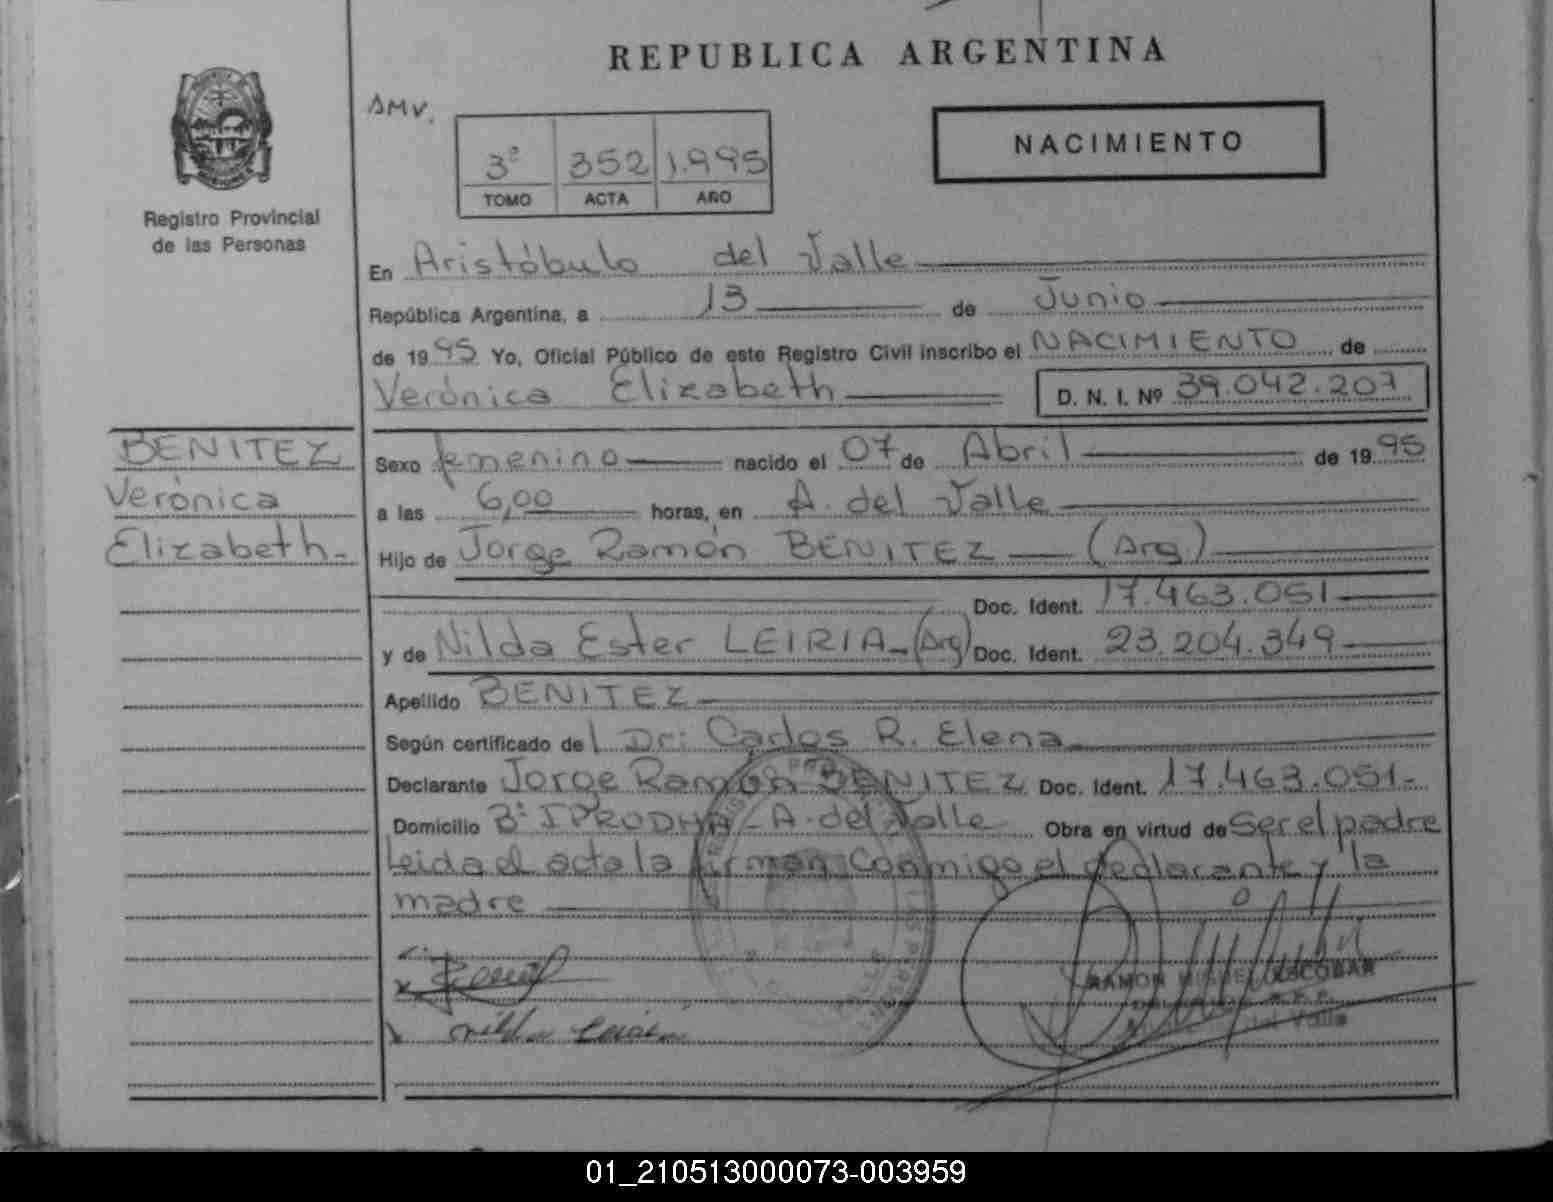 REPUBLICA ARGENTINA
SMV.
Registro Provincial
de las Personas
3º 352 1.995
TOMO ACTA AÑO
NACIMIENTO
En Aristóbulo del Valle
República Argentina, a 13 de Junio
de 1995 Yo, Oficial Público de este Registro Civil inscribo el NACIMIENTO de
Verónica Elizabeth D. N. I. Nº 39.042.207
BENITEZ
Verónica
Elizabeth-
Sexo femenino nacido el 07 de Abril de 1995
a las 6,00 horas, en A. del Valle
Hijo de Jorge Ramón BENITEZ (Arg)
Doc. Ident. 17.463.051
y de Nilda Ester LEIRIA-(Arg) Doc. Ident. 23.204.349
Apellido BENITEZ
Según certificado del Dr: Carlos R. Elena
Declarante Jorge Ramón BENITEZ Doc. Ident. 17.463.051-
Domicilio Bº IPRODHA-A. del Valle Obra en virtud de Ser el padre
Leida el acta la firman Conmigo el declarante y la
madre
RAMON MIGUEL ESCOBAR
01_210513000073-003959